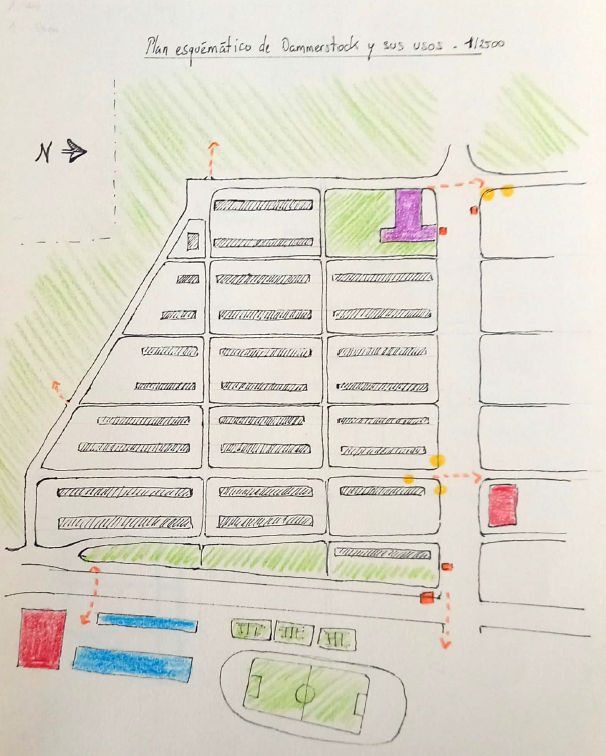 Plan esquémático de Dammerstock y sus usos - 1/2500
N